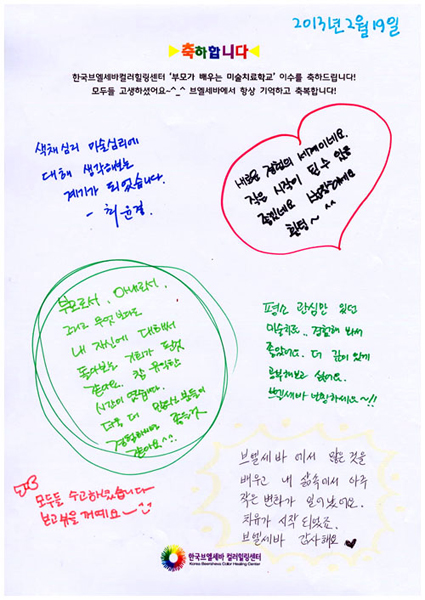 2013년 2월 19일
축하합니다
한국브엘세바컬러힐링센터 '부모가 배우는 미술치료학교' 이수를 축하드립니다!
모두들 고생하셨어요~^_^ 브엘세바에서 항상 기억하고 축복합니다!
색채심리 미술심리에
대해 생각해보는
계기가 되었습니다.
- 최윤정.
새로운 경험의 세계이네요.
작은 시작이 된 수 있음
힘텅~ ^^
부모로서, 아내로서,
그리고 무엇보다도
내 자신에 대해서
돌아보는 기회가 된것
같아요. 참 유익한
시간이 였습니다.
더욱 더 많은 분들이
경험하시면 좋을것
같아요^^.
평소 관심만 있던
미술치료.. 경험해 봐서
좋았어요. 더 깊이 있게
공부해보고 싶어요.
브엘세바 번창하세요~!!
브엘세바에서 많은 것을
배우고 내 삶속에서 아주
작은 변화가 일어났어요.
치유가 시작되었죠.
브엘세바 감사해요 ♥
모두들 수고하셨습니다
보고싶을 거예요~
한국브엘세바 컬러힐링센터
Korea Beersheva Color Healing Center